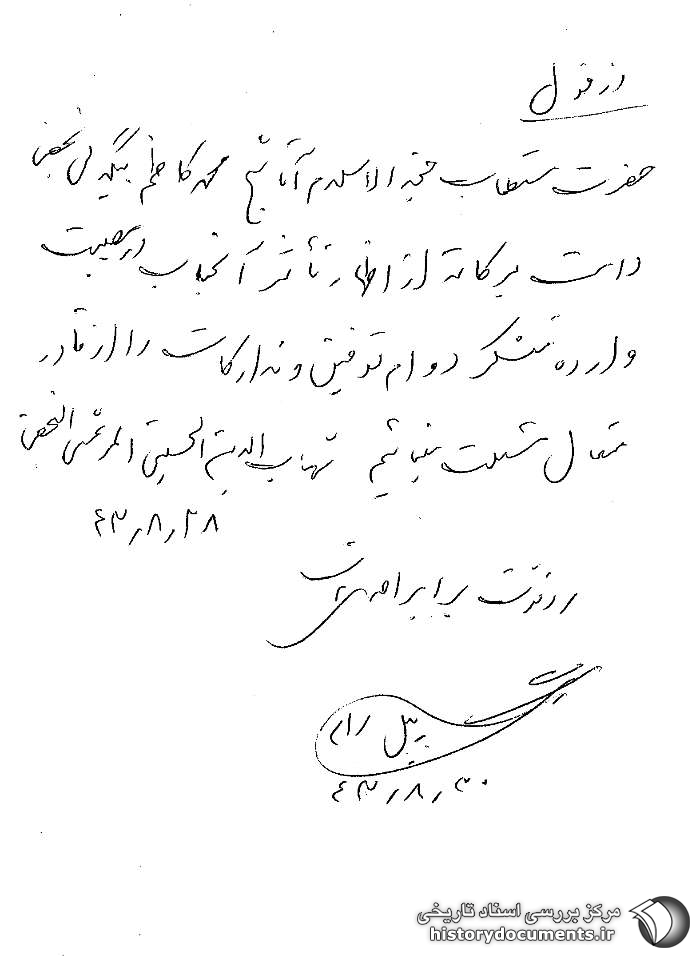 دزفول
حضرت مستطاب حجة الاسلام آقا شیخ محمد کاظم بیگدلی
دامت برکاته از اظهار تأثر آنجناب در مصیبت
وارده متشکر دوام توفیق و تدارکات را از قادر
متعال مسئلت مینمائیم شهاب الدین الحسینی المرعشی النجفی
۴۳٫۸٫۲۸
رونوشت برابر اصل است
۴۳٫۸٫۳۰
مرکز بررسی اسناد تاریخی
historydocuments.ir